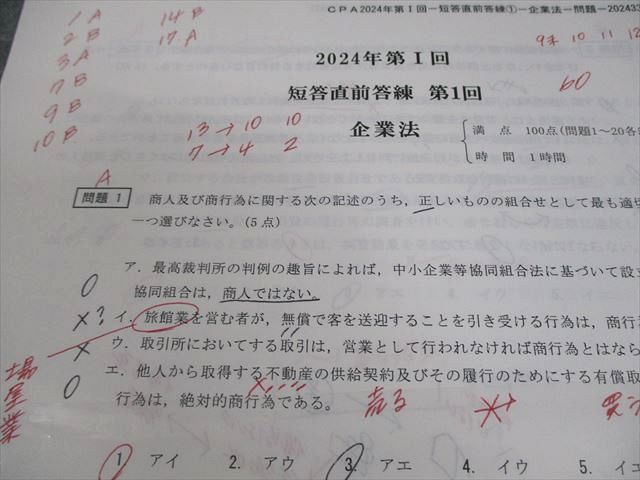 CPA2024年第Ⅰ回-短答直前答練①-企業法-問題-202433
1 A 14 B
2 B 17. A
3 A
7 B
9 B
10 B
10 11 12
2024年第Ⅰ回
60
短答直前答練 第1回
13→10 10
7→4 2
企業法
満 点 100点(問題1～20各
時 間 1時間
A
問題 1 商人及び商行為に関する次の記述のうち，正しいものの組合せとして最も適切
一つ選びなさい。(5点)
ア．最高裁判所の判例の趣旨によれば，中小企業等協同組合法に基づいて設立
○ 協同組合は，商人ではない。
×? イ．旅館業を営む者が，無償で客を送迎することを引き受ける行為は，商行
× ウ．取引所においてする取引は，営業として行われなければ商行為とはなら
エ．他人から取得する不動産の供給契約及びその履行のためにする有償取
○ 行為は，絶対的商行為である。
場屋業
売る
1 アイ 2． アウ 3． アエ 4． イウ 5． イエ